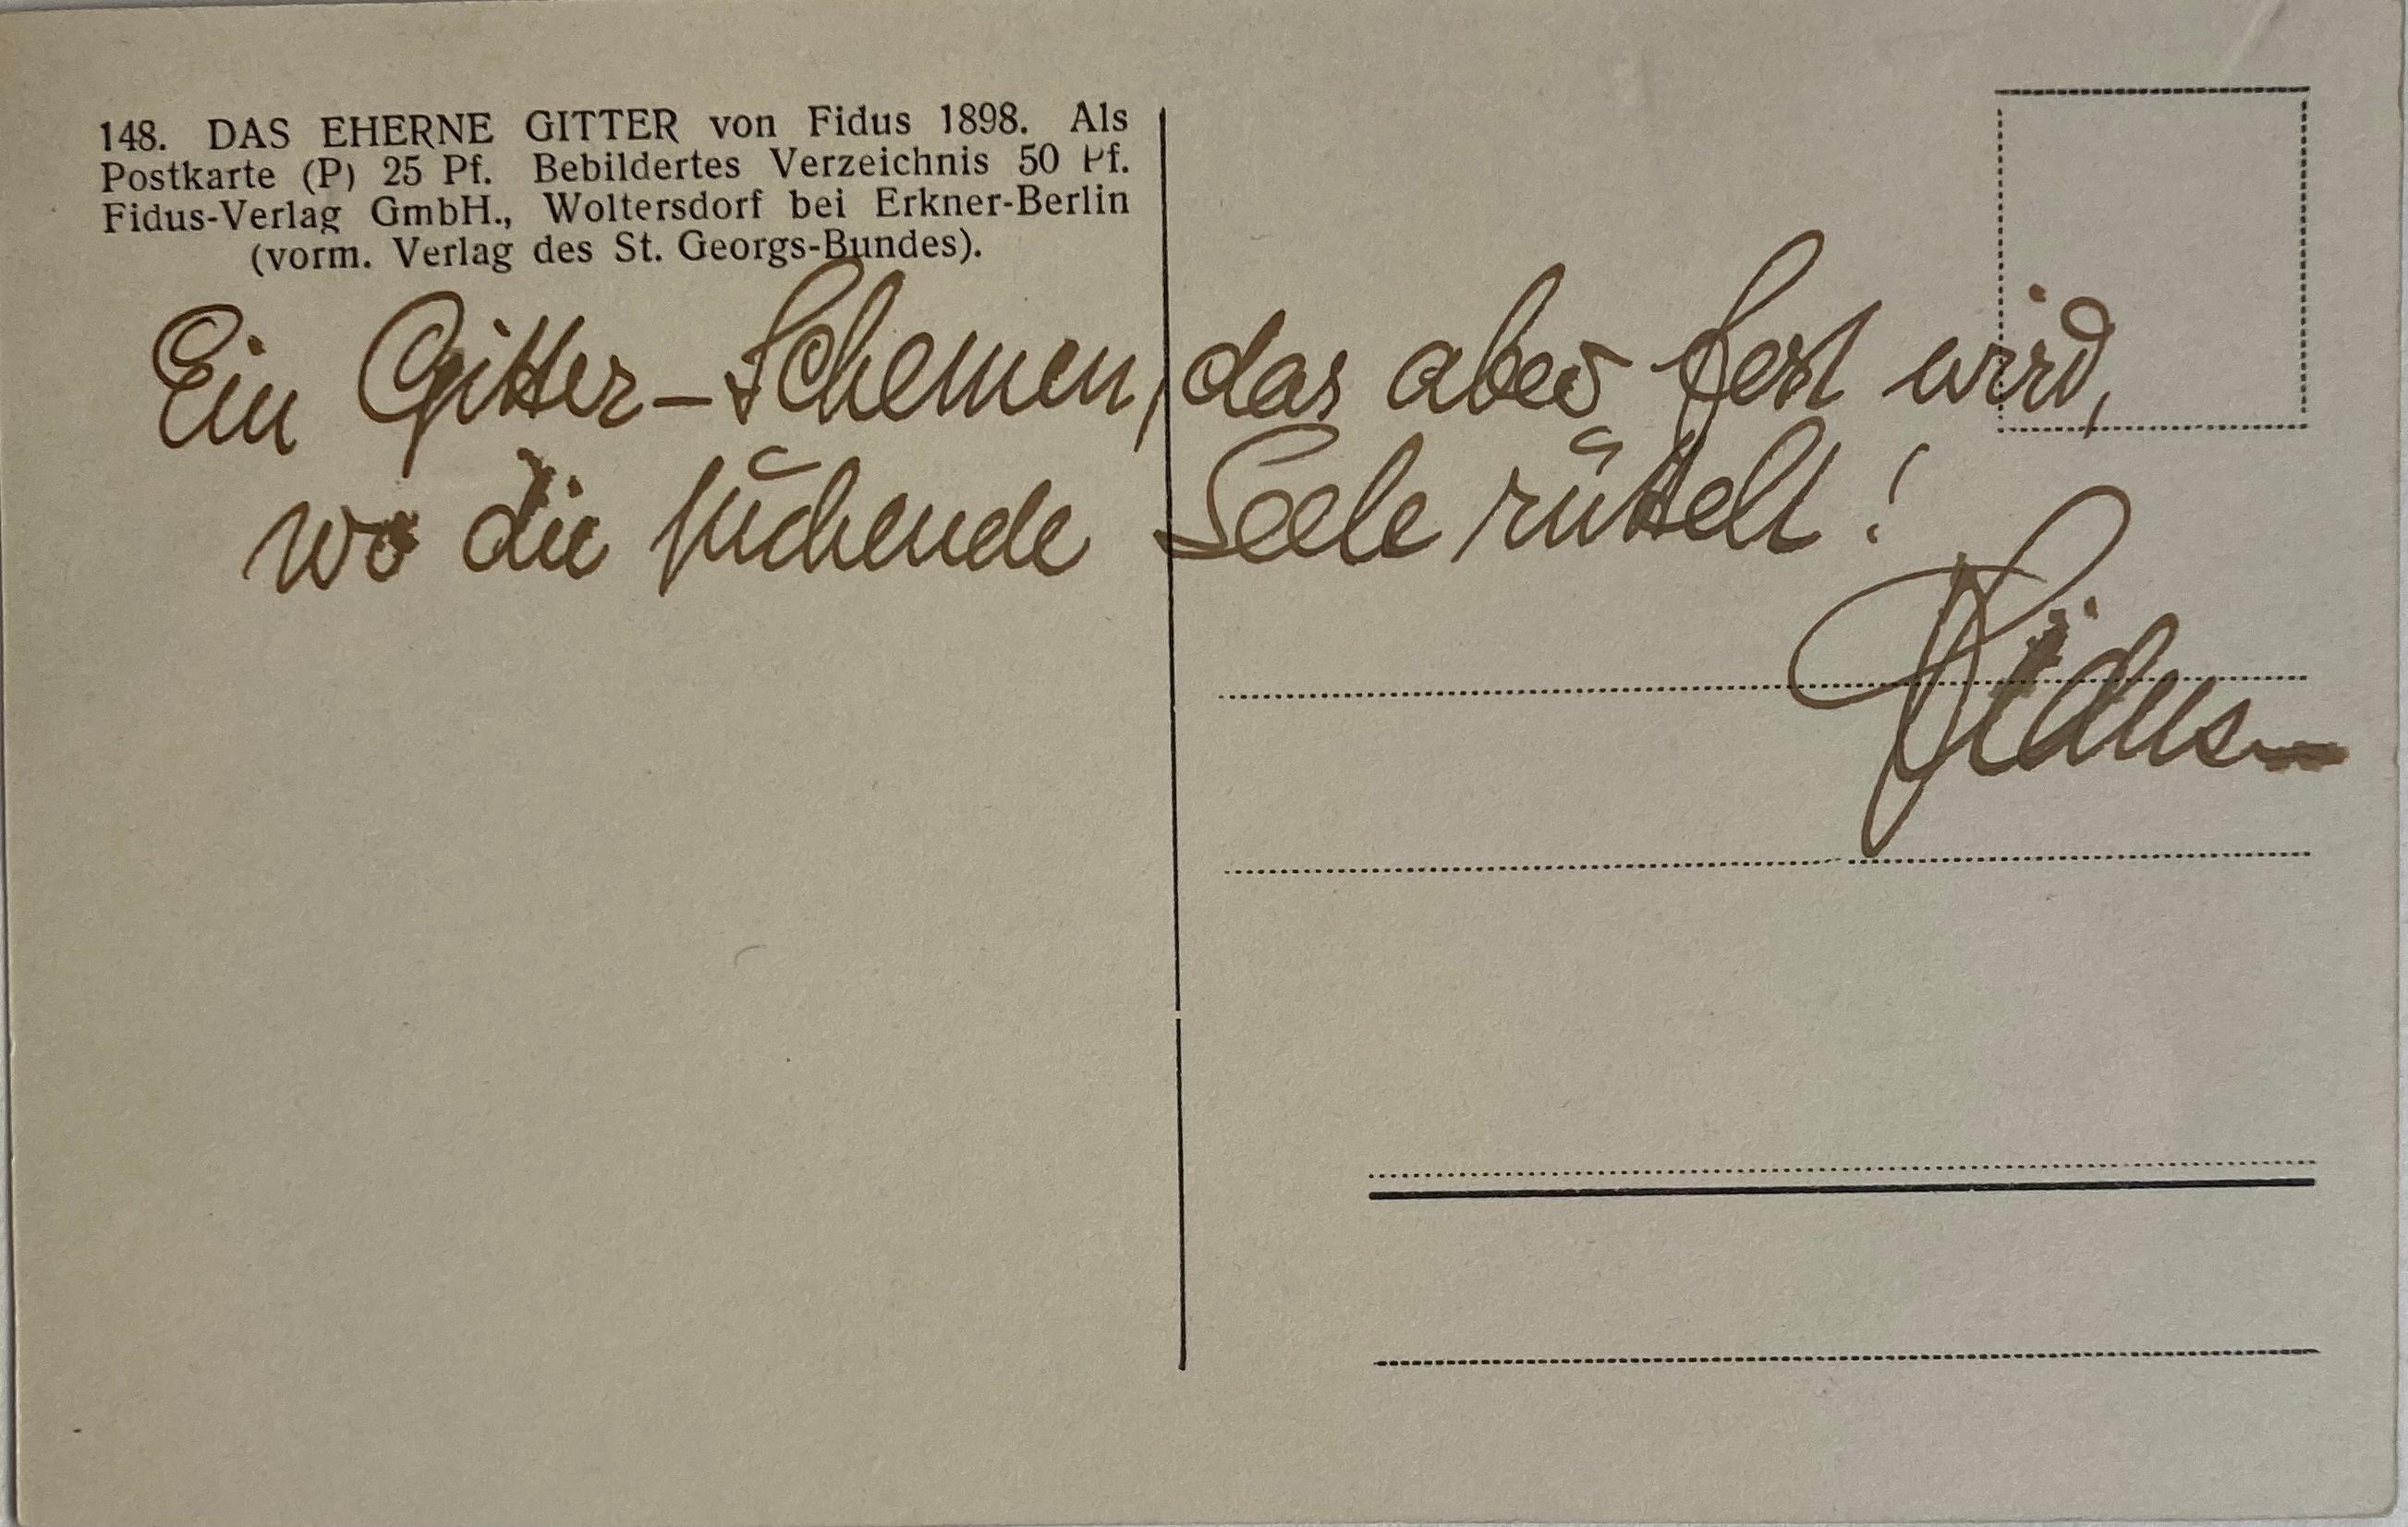 148. DAS EHERNE GITTER von Fidus 1898. Als
Postkarte (P) 25 Pf. Bebildertes Verzeichnis 50 Pf.
Fidus-Verlag GmbH., Woltersdorf bei Erkner-Berlin
(vorm. Verlag des St. Georgs-Bundes).
Ein Gitter-Schemen, das aber fest wird,
wo die suchende Seele rüttelt!
Fidus